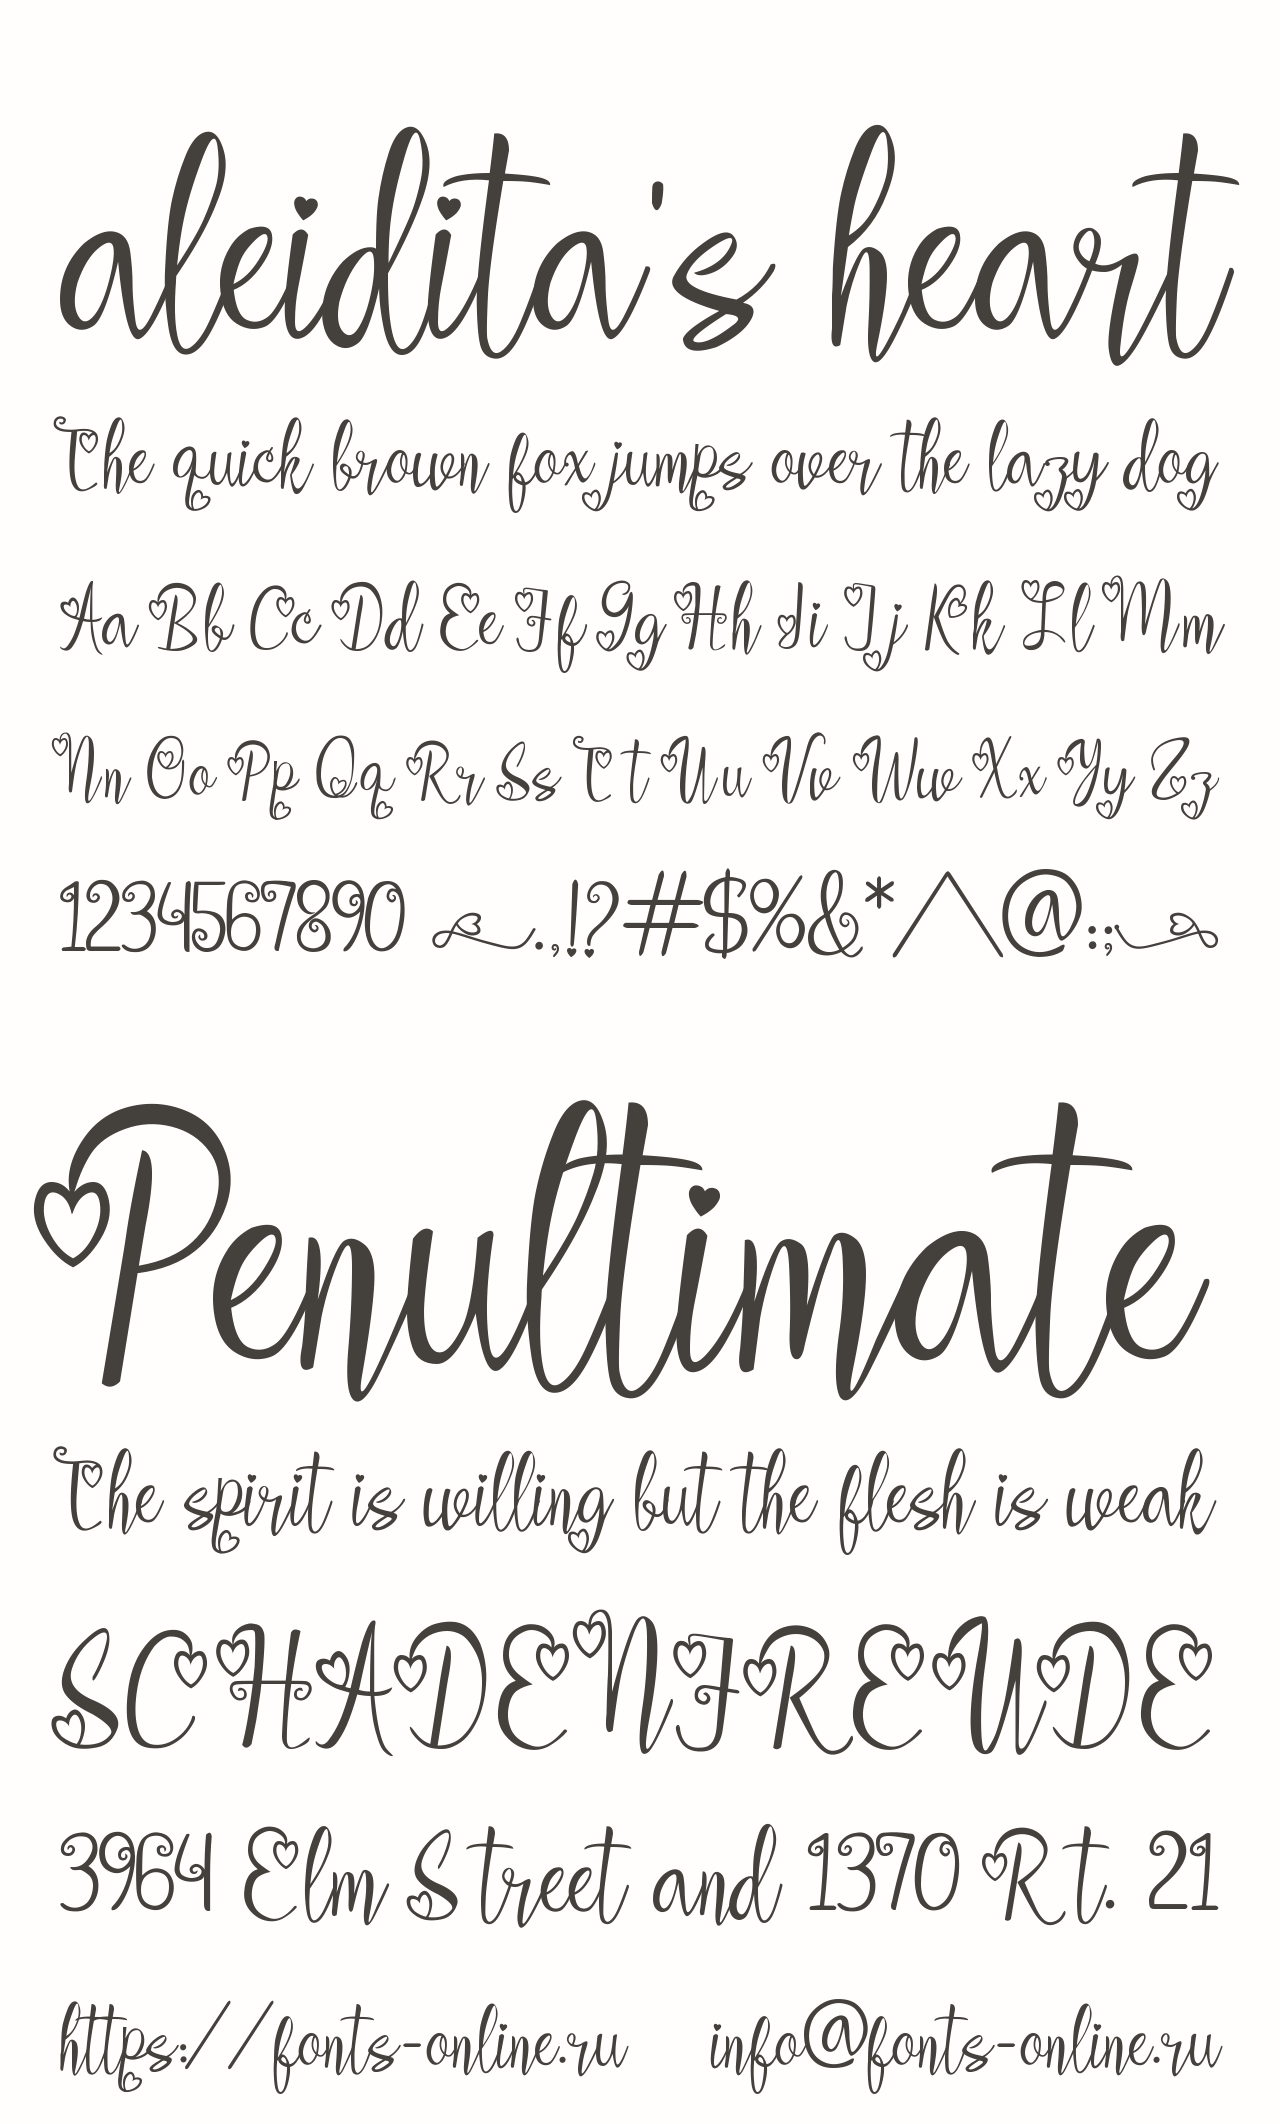 aleidita's heart
The quick brown fox jumps over the lazy dog
Aa Bb Cc Dd Ee Ff Gg Hh Ii Jj Kk Ll Mm
Nn Oo Pp Qq Rr Ss Tt Uu Vv Ww Xx Yy Zz
1234567890 .,!?#$%&*^@:;
Penultimate
The spirit is willing but the flesh is weak
SCHADENFREUDE
3964 Elm Street and 1370 Rt. 21
https://fonts-online.ru info@fonts-online.ru